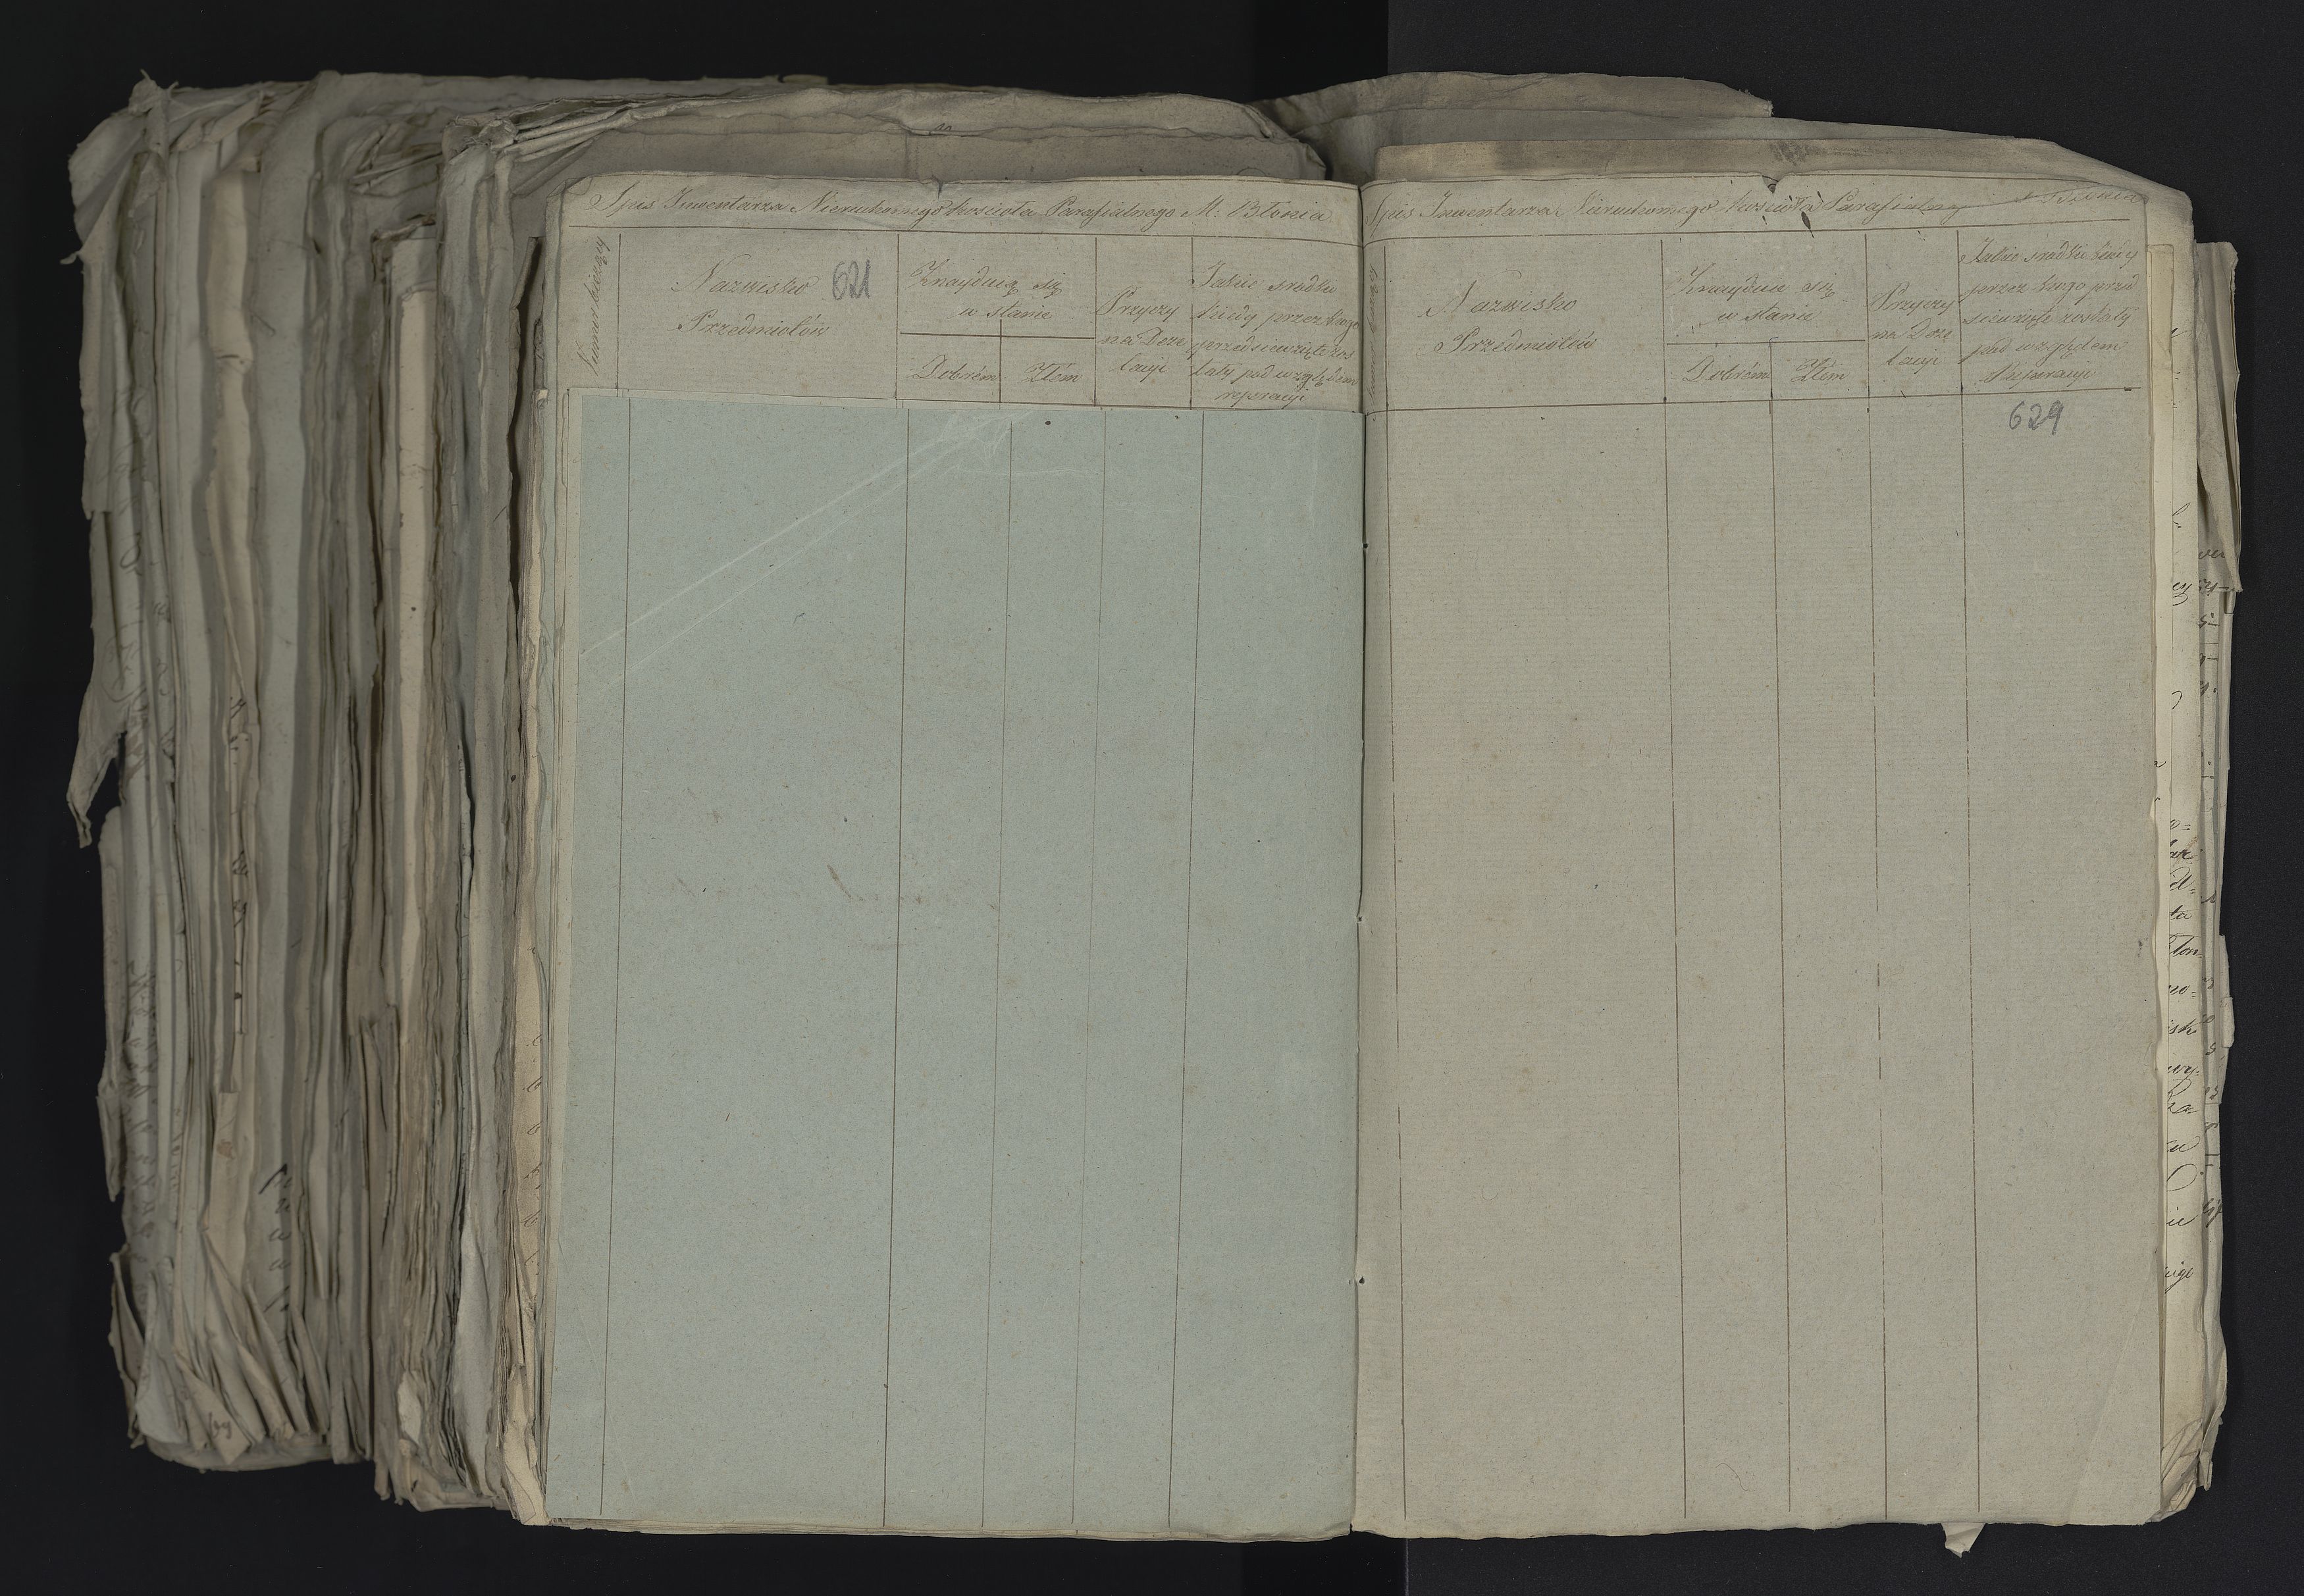 Spis Inwentarza Nieruchomego kościoła Parafialnego M. Błonia
Numer bieżący
Nazwisko
Przedmiotów
621
Znayduią się
w stanie
Dobrém
Złém
Przyczy
na Deze
lacyi
Jakie srodki
kiedy przez kogo
przedsiewzięte zos
tały pod względem
reparacyi
Spis Inwentarza Nieruchomego kościoła Parafialnego Błonia
Nazwisko
Przedmiotów
Znayduie się
w stanie
Dobrém
Złém
Przyczy
na Deze
lacyi
Jakie srodki kiedy
przez kogo przed
siewzięte zostały
pod względem
Reparacyi
629